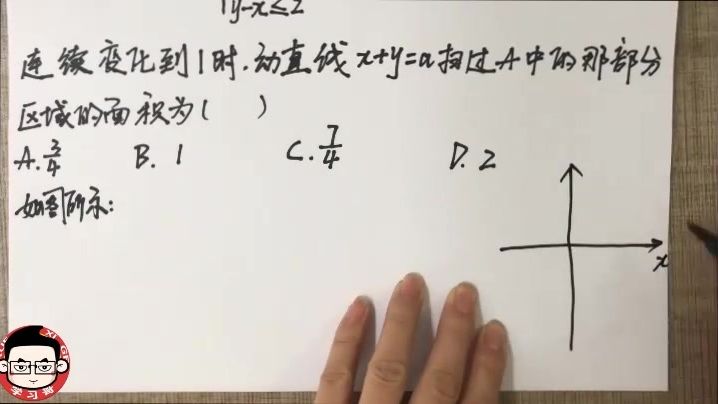 y-x≤2
连续变化到1时.动直线x+y=a扫过A中的那部分
区域的面积为( )
A. 3/4 B. 1 C. 7/4 D. 2
如图所示:
x
学习哥